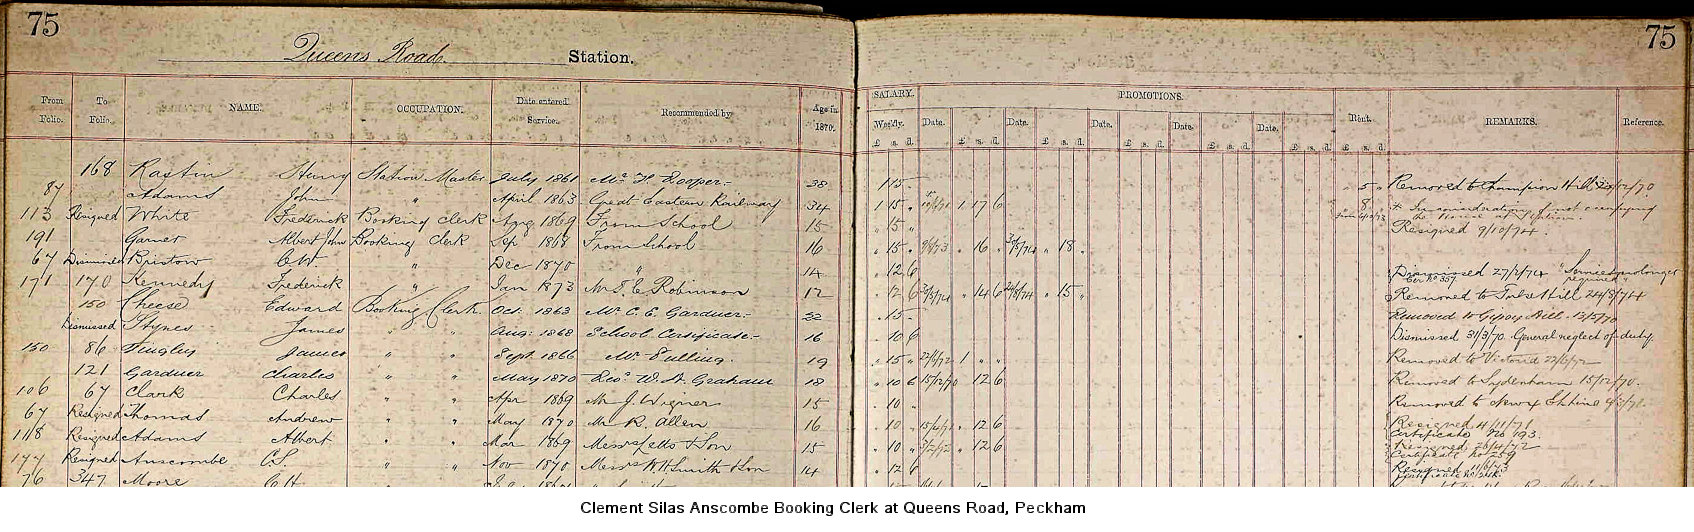 75
75
Queens Road Station.
From Folio. To Folio. NAME. OCCUPATION. Date entered Service. Recommended by Age in 1870. SALARY. Weekly. £ s. d. PROMOTIONS. Date. £ s. d. Date. £ s. d. Date. £ s. d. Date. £ s. d. Date. £ s. d. Rent. £ s. d. REMARKS. Reference.
168 Rastin Henry Station Master July 1861 38 1 15 5 Removed to Champion Hill /12/70
87 Adams John " April 1863 Great Eastern Railway 34 1 15 1 17 6 8 In consideration of not occupying the House at Station.
113 Resigned White Frederick Booking Clerk Aug 1869 From School 15 " 5 " Resigned 9/10/74.
191 Garner Albert John Booking Clerk Sep 1868 From School 16 " 15 " " 16 " " 18 "
67 Dismissed Bristow C.W. " Dec 1870 " 14 " 12 6 Dismissed 27/2/74 "Services no longer required"
171 170 Kennedy Frederick " Jan 1873 Mr E. C. Robinson 12 " 12 6 " 14 6 24/8/74 " 15 " Removed to Tulse Hill 24/8/74
150 Cheese Edward Booking Clerk. Oct. 1863 Mr C. E. Gardner 22 " 15 Removed to Gipsy Hill
Dismissed Stynes James " " Aug. 1868 School Certificate 16 " 10 6 Dismissed 31/3/70. General neglect of duty.
150 86 Tingley James " " Sept. 1866 Mr Pulling. 19 " 15 " 22/6/72 1 " " Removed to Victoria 22/6/72
121 Gardner Charles " " May 1870 Revd W. A. Graham 18 " 10 6 15/12/70 " 12 6 Removed to Sydenham 15/12/70.
106 67 Clark Charles " " Apr 1869 Mr J. Wigner 15 " 10 " Removed to New
67 Resigned Thomas Andrew " " May 1870 Mr R. Allen 16 " 10 " " 12 6 Resigned 4/11/71 Certificate No 193.
118 Resigned Adams Albert " " Mar 1869 Messrs Letts & Son 15 " 10 " 3/2/72 " 12 6 Resigned 26/4/72 Certificate No 259
177 Resigned Anscombe C.S. " " Nov 1870 Messrs W.H. Smith & Son 14 " 12 6 Resigned 11/6/73
76 347 Moore
Clement Silas Anscombe Booking Clerk at Queens Road, Peckham